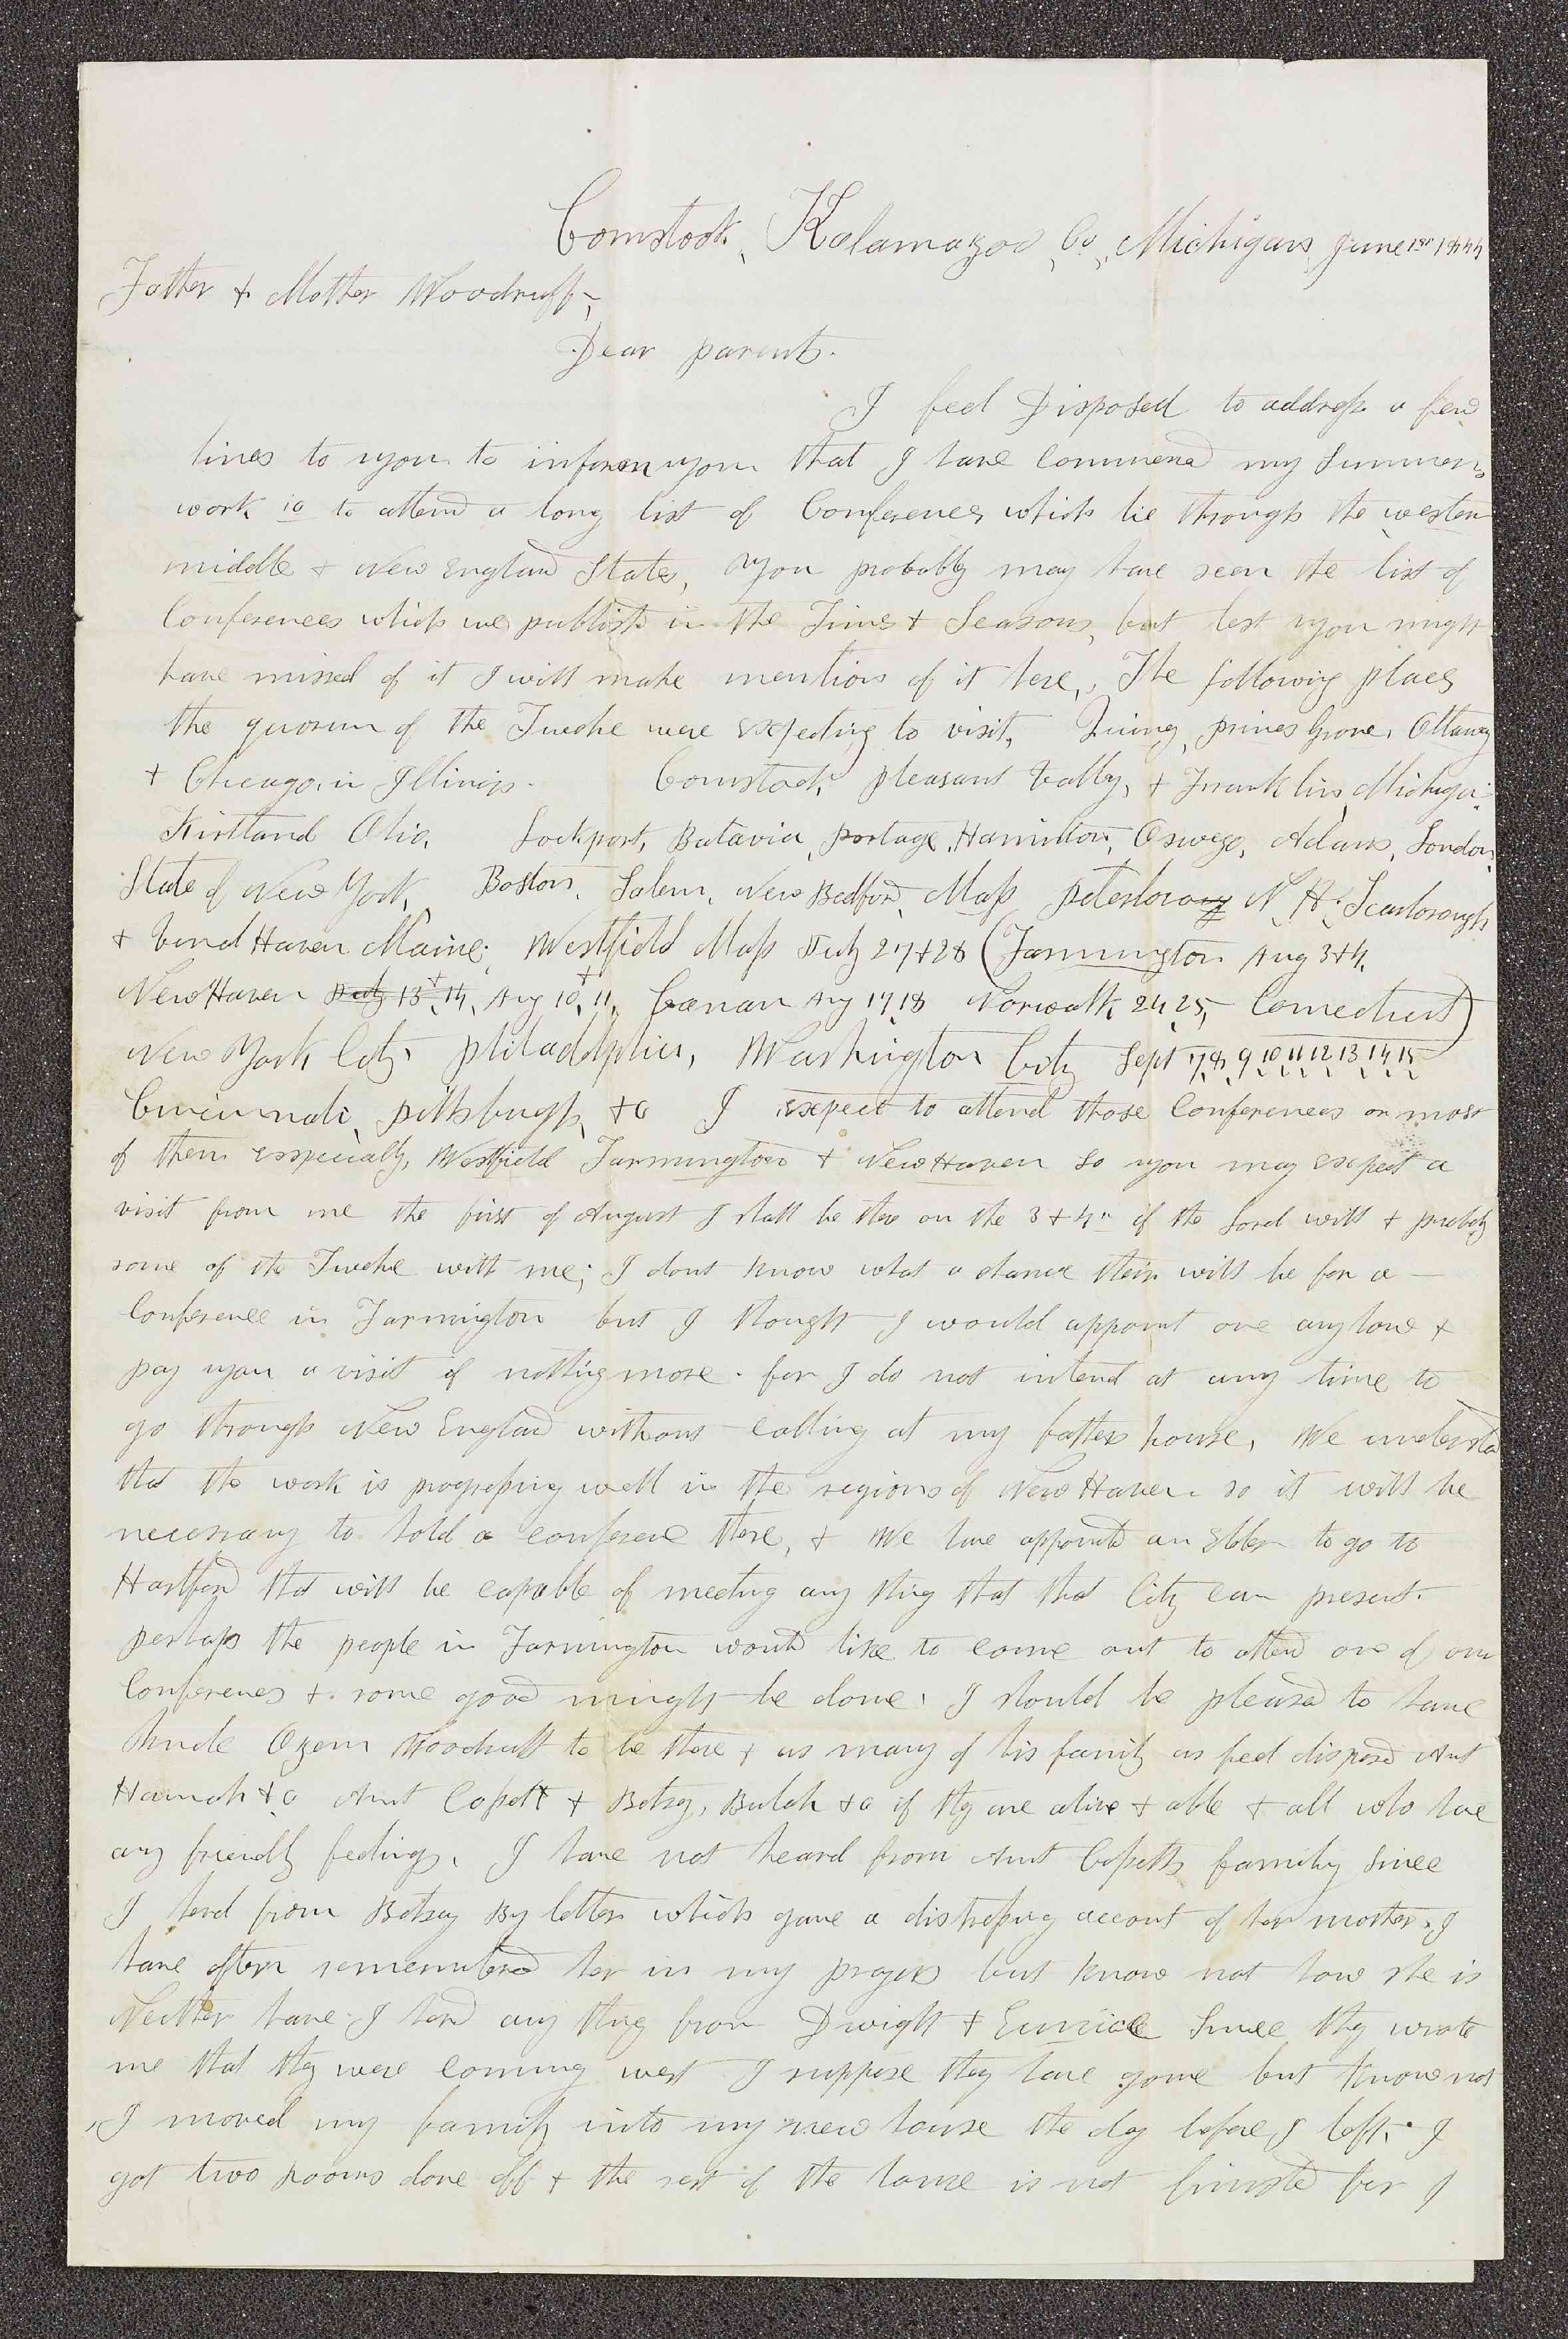 Comstock, Kalamazoo Co, Michigan June 1st 1844
Father & Mother Woodruff,
Dear parents.
I feel Disposed to address a few
lines to you to inform you that I have commenced my Summers
work ie to attend a long list of Conferences which lie through the western
middle & New England States, you probably may have seen the list of
Conferences which we publish in the Times & Seasons, but lest you might
have missed of it I will make mention of it here, The following places
the quorum of the Twelve were expecting to visit, Quincy, princes Grove, Ottawa
& Chicago, in Illinois. Comstock, pleasant Vally, & Franklin, Michigan
Kirtland Ohio, Lockport, Batavia, portage, Hamilton, Oswego, Adams, London,
State of New York, Boston, Salem, New Bedford, Mass peterboro N. H. Scarborough
& Vinal Haven Maine; Westfield Mass July 27 & 28 (Farmington Aug 3 & 4,
New Haven July 13 & 14, Aug 10 & 11, Canaan Aug 17, 18 Norwalk 24 25, Connecticut)
New York City, philadelphia, Washington City Sept 7, 8, 9 10 11 12 13 14 15
Cincinnati, pittsburgh, &c I expect to attend those Conferences or most
of them especially, Westfield Farmington & New Haven so you may expect a
visit from me the first of August I shall be there on the 3 & 4th if the Lord will & probably
some of the Twelve with me; I dont know what a chance their will be for a
Conference in Farmington but I thought I would appoint one any how &
pay you a visit if nothing more. for I do not intend at any time to
go through New England without calling at my fathers house, We understand
that the work is progressing well in the regions of New Haven so it will be
necessary to hold a conference there, & We have appointed an Elder to go to
Hartford that will be capable of meeting any thing that that City can present.
perhaps the people in Farmington would like to come out to attend one of our
Conferences & some good might be done, I should be pleased to have
Uncle Ozem Woodruff to be there & as many of his family as feel disposed Aunt
Hannah &c Aunt Cossett & Betsey, Bulah &c if they are alive & able & all who have
any friendly feelings, I have not heard from Aunt Cossetts family since
I herd from Betsey By letter which gave a distressing account of her mother, I
have often remembered her in my prayers but know not how she is
Neither have I herd any thing from Dwight & Eunice Since they wrote
me that they were coming west I suppose they have gone but know not
I moved my family into my new house the day before I left, I
got two rooms done off & the rest of the house is not finished for I